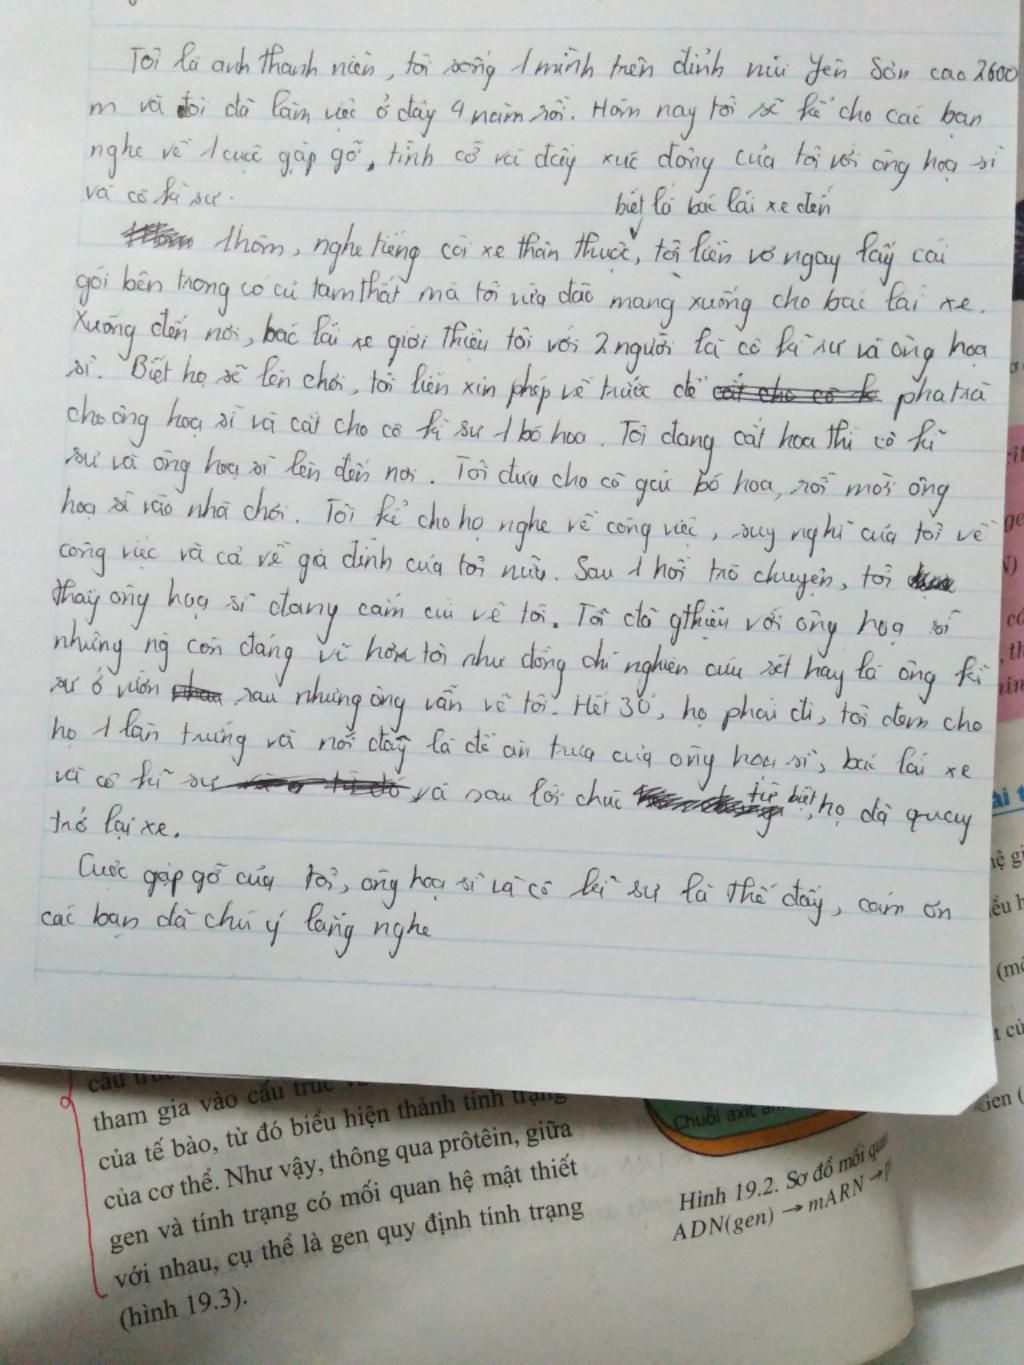 Tôi là anh thanh niên, tôi sống 1 mình trên đỉnh núi Yên Sơn cao 2600
m và tôi đã làm việc ở đây 4 năm rồi. Hôm nay tôi sẽ kể cho các bạn
nghe về 1 cuộc gặp gỡ, tình cờ và đầy xúc động của tôi với ông hoạ sĩ
và cô kĩ sư.
biết là bác lái xe đến
1 hôm, nghe tiếng còi xe thân thuộc, tôi liền vơ ngay lấy cái
gói bên trong có củ tam thất mà tôi vừa đào mang xuống cho bác lái xe.
Xuống đến nơi, bác lái xe giới thiệu tôi với 2 người là cô kĩ sư và ông hoạ
sĩ. Biết họ sẽ lên chơi, tôi liền xin phép về trước để pha trà
cho ông hoạ sĩ và cắt cho cô kĩ sư 1 bó hoa. Tôi đang cắt hoa thì cô kĩ
sư và ông hoạ sĩ lên đến nơi. Tôi đưa cho cô gái bó hoa, rồi mời ông
hoạ sĩ vào nhà chơi. Tôi kể cho họ nghe về công việc, suy nghĩ của tôi về
công việc và cả về gia đình của tôi nữa. Sau 1 hồi trò chuyện, tôi
thấy ông hoạ sĩ đang cắm cúi vẽ tôi. Tôi đã gthiệu với ông hoạ sĩ
những ng còn đáng vẽ hơn tôi như đồng chí nghiên cứu sét hay là ông kĩ
sư ở vườn rau nhưng ông vẫn vẽ tôi. Hết 30', họ phải đi, tôi đem cho
họ 1 làn trứng và nói đấy là để ăn trưa của ông hoạ sĩ, bác lái xe
và cô kĩ sư và sau lời chúc tạm biệt, họ đã quay
trở lại xe.
Cuộc gặp gỡ của tôi, ông hoạ sĩ và cô kĩ sư là thế đấy, cám ơn
các bạn đã chú ý lắng nghe
tham gia vào cấu trúc
của tế bào, từ đó biểu hiện thành tính trạng
của cơ thể. Như vậy, thông qua prôtêin, giữa
gen và tính trạng có mối quan hệ mật thiết
với nhau, cụ thể là gen quy định tính trạng
(hình 19.3).
Chuỗi axit
Hình 19.2. Sơ đồ mối
ADN(gen) → mARN →